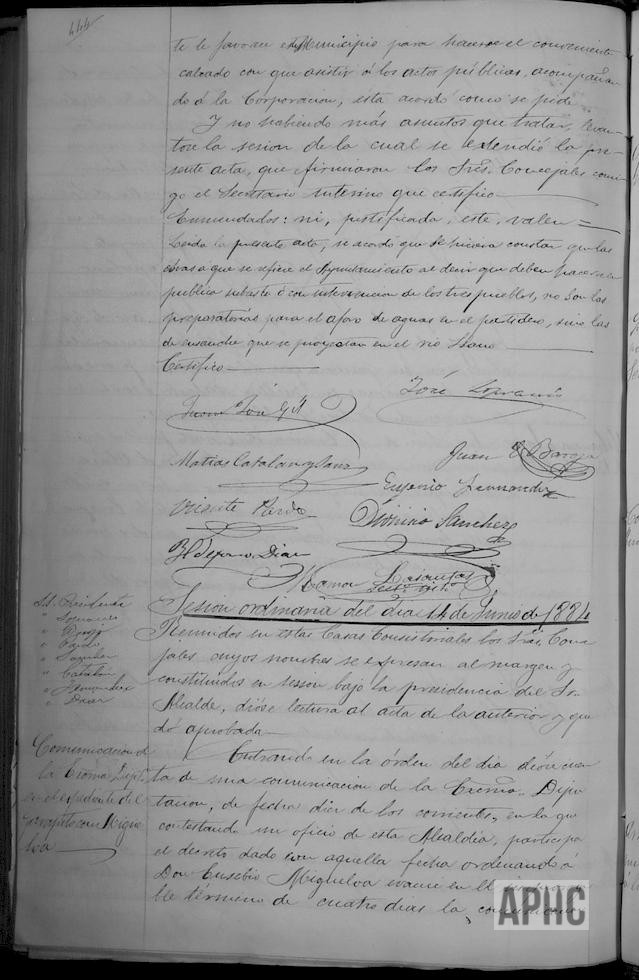 444
te le favorece el Municipio para hacerse el conveniente
calzado con que asistir á los actos públicos, acompañan
do á la Corporacion, esta acordó como se pide.
Y no habiendo más asuntos que tratar, levan
tose la sesion de la cual se extendió la pre-
sente acta, que firmaron los Sres. Concejales conmi
go el Secretario interino que certifico
Enmendados: ni, justificada, este, valen =
Leida la presente acta, se acordó que se hiciera constar que las
obras a que se refiere el Ayuntamiento al decir que deben hacerse en
publica subasta ó con intervencion de los tres pueblos, no son las
preparatorias para el aforo de aguas en el partidero, sino las
de ensanche que se proyectan en el rio
Certifico
José
Juan José Gil
Juan
Matias Catalan y Sanz
Eugenio Fernandez
Vicente Pardo
Dionisio Sanchez
Diaz
Ramon
Sesion ordinaria del dia 14 de Junio de 1884
S.S. Presidente
"
"
" Pardo
" Sanchez
" Catalan
" Fernandez
" Diaz
Reunidos en estas Casas Consistoriales los Sres. Conce
jales cuyos nombres se expresan al margen y
constituidos en sesion bajo la presidencia del Sr.
Alcalde, dióse lectura al acta de la anterior y que
dó aprobada
Comunicacion de
la Excma Diput.
en el expediente del
con Migue
loa
Entrando en la órden del dia dióse cuen
ta de una comunicacion de la Excma. Dipu
tacion, de fecha diez de los corrientes, en la que
contestando un oficio de esta Alcaldía, participa
el decreto dado con aquella fecha ordenando á
Don Eusebio Migueloa evacue en el improrroga
ble término de cuatro dias la
APHC